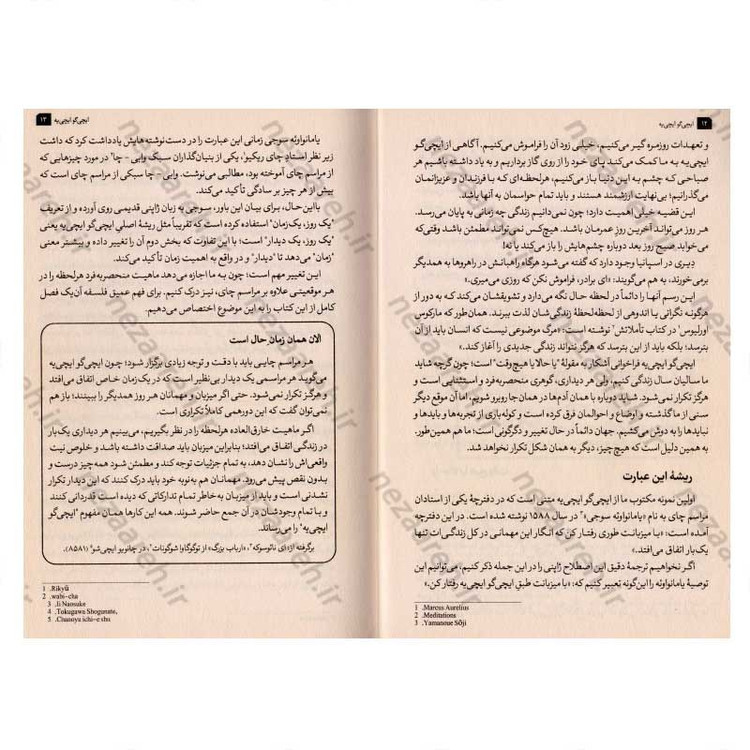 ۱۲ ایچی‌گو ایچی‌یه
و تعهدات روزمره گیر می‌کنیم، خیلی زود آن را فراموش می‌کنیم. آگاهی از ایچی‌گو
ایچی‌یه به ما کمک می‌کند پای خود را از روی گاز برداریم و به یاد داشته باشیم هر
صباحی که چشم به این دنیا باز می‌کنیم، هرلحظه‌ای که با فرزندان و عزیزانمان
می‌گذرانیم؛ بی‌نهایت ارزشمند هستند و باید تمام حواسمان به آنها باشد.
این قضیه خیلی اهمیت دارد؛ چون نمی‌دانیم زندگی چه زمانی به پایان می‌رسد.
هر روز می‌تواند آخرین روز عمرمان باشد. هیچ‌کس نمی‌تواند مطمئن باشد وقتی‌که
می‌خوابد صبح روز بعد دوباره چشم‌هایش را باز می‌کند یا نه!
دیری در اسپانیا وجود دارد که گفته می‌شود هرگاه راهبانش در راهروها به همدیگر
برمی‌خورند، به هم می‌گویند: «ای برادر، فراموش نکن که روزی می‌میری.»
این رسم آنها را دائماً در لحظه حال نگه می‌دارد و تشویقشان می‌کند که به دور از
هرگونه نگرانی یا اندوهی از لحظه‌لحظهٔ زندگی‌شان لذت ببرند. همان‌طور که مارکوس
اورلیوس۱ در کتاب تأملاتش۲ نوشته است: «مرگ موضوعی نیست که انسان باید از آن
بترسد؛ بلکه باید از این بترسد که هرگز نتواند زندگی جدیدی را آغاز کند.»
ایچی‌گو ایچی‌یه فراخوانی آشکار به مقولهٔ "یا حالا یا هیچ‌وقت" است؛ چون گرچه شاید
ما سالیان سال زندگی کنیم، ولی هر دیداری، گوهری منحصربه‌فرد و استثنایی است و
هرگز تکرار نمی‌شود. شاید دوباره با همان آدم‌ها در همان‌جا روبرو شویم، اما آن موقع دیگر
سنی از ما گذشته و اوضاع و احوالمان فرق کرده است و کوله‌باری از تجربه‌ها و بایدها و
نبایدها را به دوش می‌کشیم. جهان دائماً در حال تغییر و دگرگونی است؛ ما هم همین‌طور.
به همین دلیل است که هیچ‌چیز، دیگر به همان شکل تکرار نخواهد شد.
ریشهٔ این عبارت
اولین نمونه مکتوب ما از ایچی‌گو ایچی‌یه متنی است که در دفترچهٔ یکی از استادان
مراسم چای به نام «یامانواوئه سوجی۳» در سال ۱۵۸۸ نوشته شده است. در این دفترچه
آمده است: «با میزبانت طوری رفتار کن که انگار این مهمانی در کل زندگی‌ات تنها
یک‌بار اتفاق می‌افتد.»
اگر نخواهیم ترجمهٔ دقیق این اصطلاح ژاپنی را در این جمله ذکر کنیم، می‌توانیم این
توصیهٔ یامانواوئه را این‌گونه تعبیر کنیم که: «با میزبانت طبق ایچی‌گو ایچی‌یه رفتار کن.»
1 .Marcus Aurelius
2 .Meditations
3 .Yamanoue Sōji
ایچی‌گو ایچی‌یه ۱۳
یامانواوئه سوجی زمانی این عبارت را در دست‌نوشته‌هایش یادداشت کرد که داشت
زیر نظر استاد چای ریکیو۱، یکی از بنیان‌گذاران سبک وابی - چا۲ در مورد چیزهایی که
از مراسم چای آموخته بود، مطالبی می‌نوشت. وابی - چا سبکی از مراسم چای است که
بیش از هر چیز بر سادگی تأکید می‌کند.
بااین‌حال، برای بیان این باور، سوجی به زبان ژاپنی قدیمی روی آورده و از تعریف
"یک روز، یک زمان" استفاده کرده است که تقریباً مثل ریشهٔ اصلی ایچی‌گو ایچی‌یه یعنی
"یک روز، یک دیدار" است؛ با این تفاوت که بخش دوم آن را تغییر داده و بیشتر معنی
"زمان" می‌دهد تا "دیدار" و در واقع به اهمیت زمان تأکید می‌کند.
این تغییر مهم است؛ چون به ما اجازه می‌دهد ماهیت منحصربه‌فرد هرلحظه را در
هر موقعیتی علاوه بر مراسم چای، نیز درک کنیم. برای فهم عمیق فلسفه آن یک فصل
کامل از این کتاب را به این موضوع اختصاص می‌دهیم.
الان همان زمان حال است
هر مراسم چایی باید با دقت و توجه زیادی برگزار شود؛ چون ایچی‌گو ایچی‌یه به
می‌گوید هر مراسمی یک دیدار بی‌نظیر است که در یک زمان خاص اتفاق می‌افتد
و هرگز تکرار نمی‌شود. حتی اگر میزبان و مهمانان هر روز همدیگر را ببینند؛ باز هم
نمی‌توان گفت که این دورهمی کاملاً تکراری است.
اگر ماهیت خارق‌العاده هرلحظه را در نظر بگیریم، می‌بینیم هر دیداری یک‌بار
در زندگی اتفاق می‌افتد؛ بنابراین میزبان باید صداقت داشته باشد و خلوص نیت
واقعی‌اش را نشان دهد، به تمام جزئیات توجه کند و مطمئن شود همه‌چیز درست و
بدون نقص پیش می‌رود. مهمانان هم به نوبه خود باید درک کنند که این دیدار تکرار
نشدنی است و باید از میزبان به خاطر تمام تدارکاتی که دیده است قدردانی کنند
و با تمام وجودشان در آن جمع حاضر شوند. همه این کارها همان مفهوم "ایچی‌گو
ایچی‌یه" را می‌رساند.
برگرفته از: «ای نائوسوکه۳»، «ارباب بزرگ» از توگوگاوا شوگونات۴، در چانویو ایچی‌شو۵ (۸۵۸۱).
1 .Rikyū
2 .wabi-cha
3 .Ii Naosuke
4 .Tokugawa Shogunate,
5 .Chanoyu ichi-e shu
nezaareh.ir